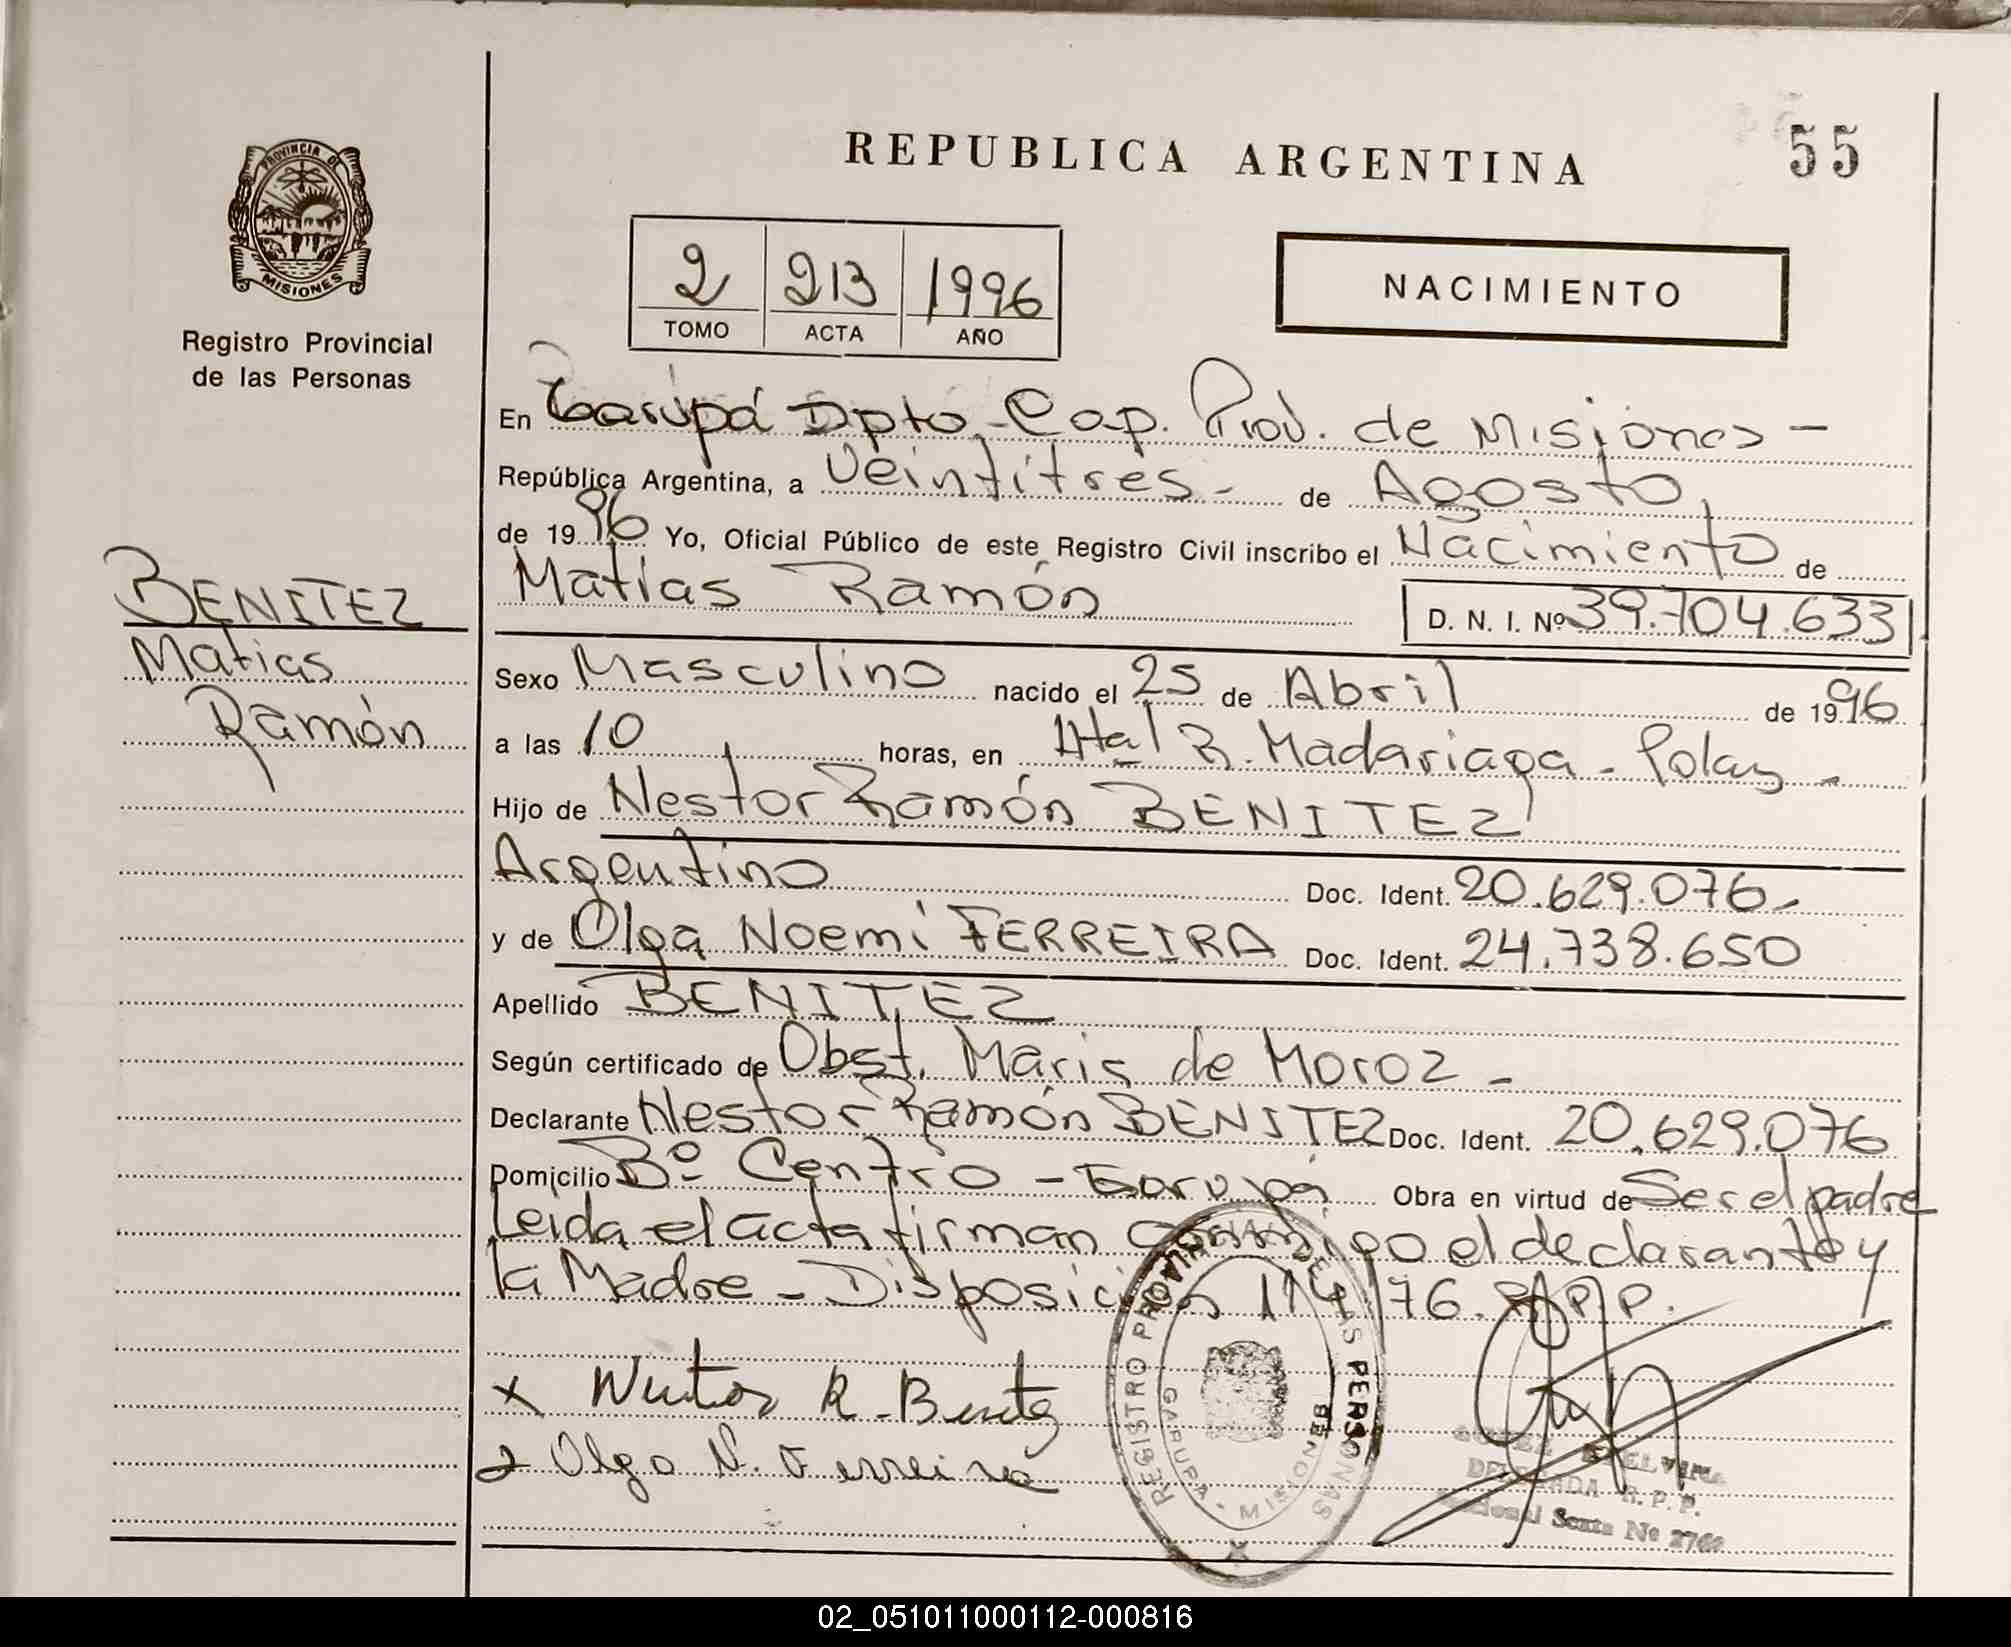 REPUBLICA ARGENTINA
55
PROVINCIA DE
MISIONES
Registro Provincial
de las Personas
2 213 1996
TOMO ACTA AÑO
NACIMIENTO
En Garupá Dpto. Cap. Prov. de Misiones -
República Argentina, a Veintitres - de Agosto
de 1996 Yo, Oficial Público de este Registro Civil inscribo el Nacimiento de
Matias Ramón
D. N. I. Nº 39.704.633
BENITEZ
Matias
Ramón
Sexo Masculino nacido el 25 de Abril de 1996
a las 10 horas, en Htal R. Madariaga - Pdas -
Hijo de Nestor Ramón BENITEZ
Argentino Doc. Ident. 20.629.076-
y de Olga Noemi FERREIRA Doc. Ident. 24.738.650
Apellido BENITEZ
Según certificado de Obst. Maris de Moroz -
Declarante Nestor Ramón BENITEZ Doc. Ident. 20.629.076
Domicilio Bº Centro - Garupá Obra en virtud de Ser el padre
Leida el acta firman conmigo el declarante y
la Madre - Disposición 114/76. R.P.P.
x Nestor R. Benitez
Olga N. Ferreira
REGISTRO PROVINCIAL DE LAS PERSONAS
GARUPA - MISIONES
ETELVINA
DELEGADA R. P. P.
Nº 2760
02_051011000112-000816